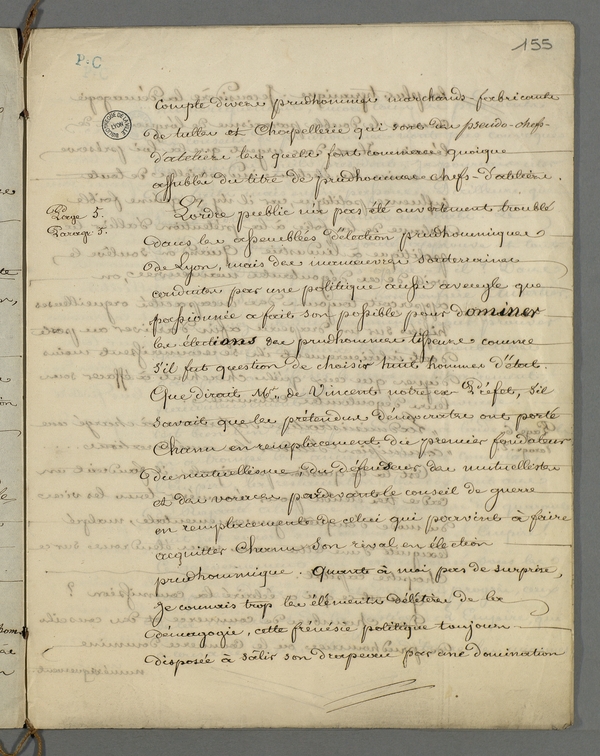 155
P. C
BIBLIOTHEQUE DE LA VILLE
LYON
compte divers prudhommes marchands-fabricants
de tulles et Chapellerie qui sont des pseudo-chefs-
d'ateliers les quels font commerce quoique
affublés du titre de prudhommes chefs-d'ateliers.
Page 5.
Parag. 5.
L'ordre public n'a pas été ouvertement troublé
dans les assemblées d'élection prudhommiques
de Lyon, mais des manœuvres souterraines
conduites par une politique aussi aveugle que
passionnée a fait son possible pour dominer
les élections des prudhommes tisseurs comme
s'il fut question de choisir huit hommes d'état.
Que dirait Mr. de Vincent notre ex Préfet, s'il
savait que les prétendus démocrates ont porté
Charnier en remplacement du premier fondateur
du mutuellisme, du défenseur des mutuellistes
et des voraces pardevant le conseil de guerre
en remplacement de celui qui parvint à faire
acquitter Charnu son rival en élection
prudhommique. Quant à moi pas de surprise,
je connais trop les éléments délétères de la
démagogie, cette frénésie politique toujours
disposée à sâlir son drapeau par une domination